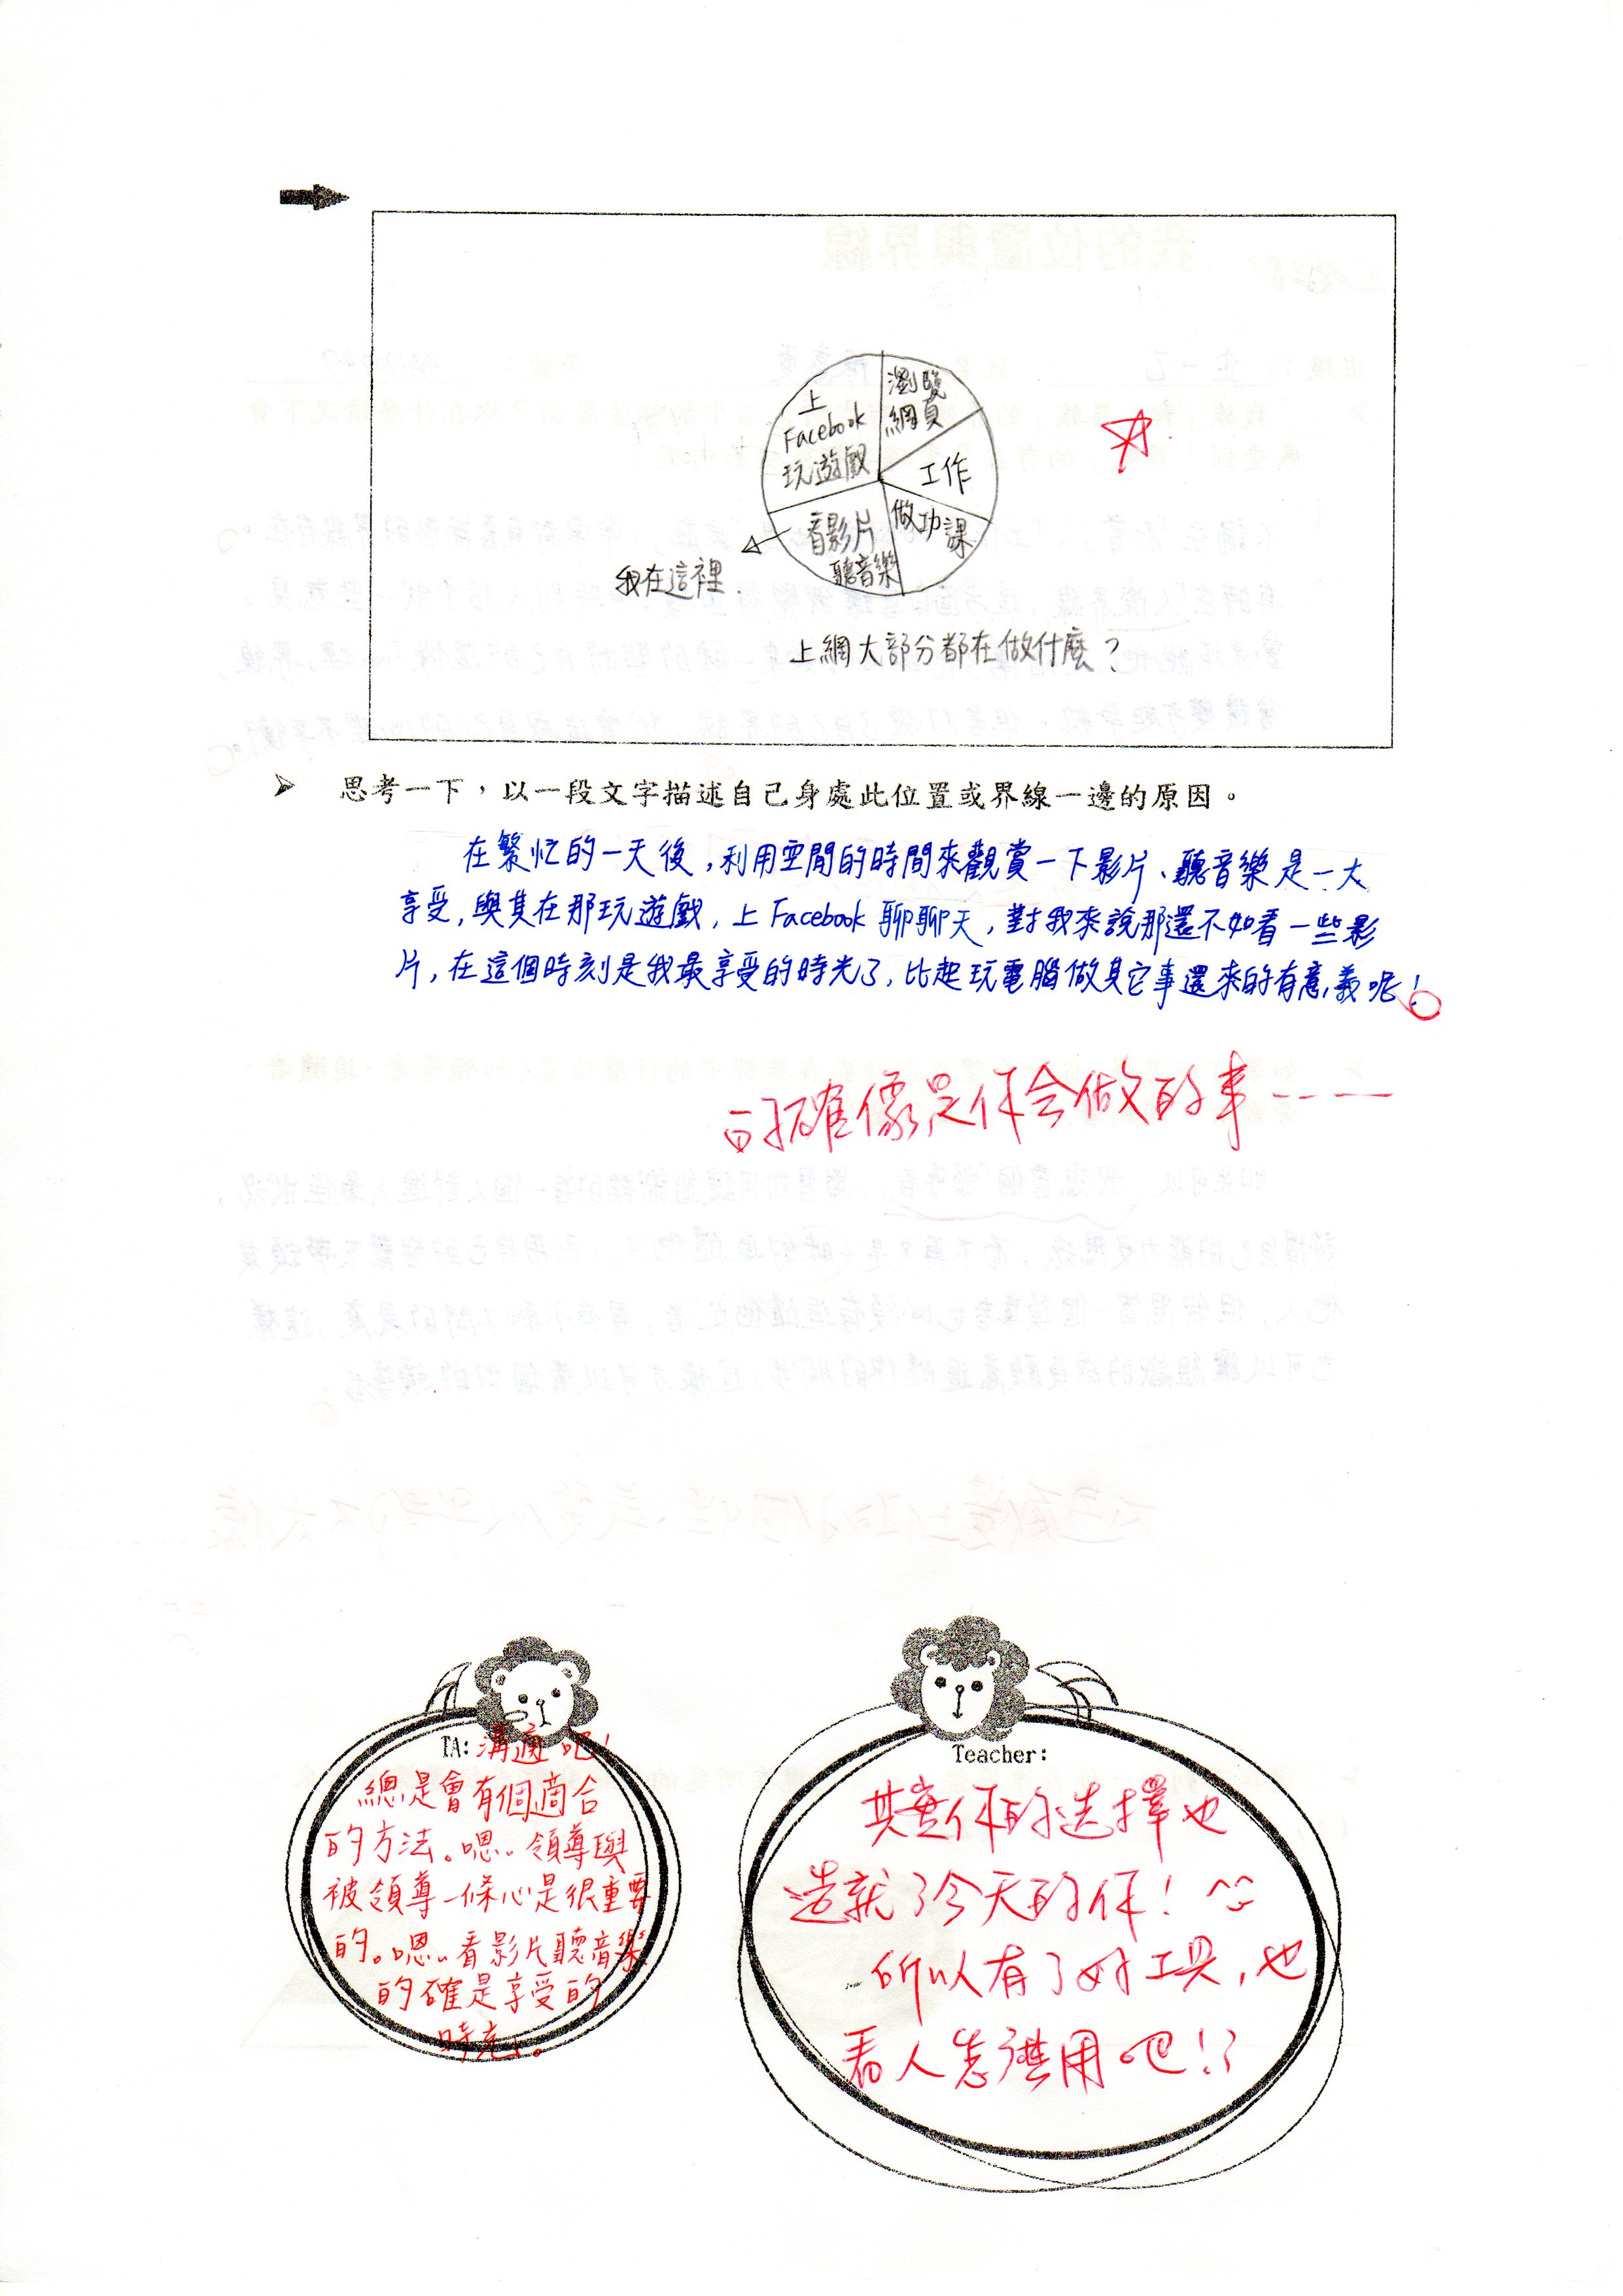 上
Facebook
玩遊戲
瀏覽
網頁
工作
做功課
看影片
聽音樂
我在這裡.
上網大部分都在做什麼?
➢ 思考一下,以一段文字描述自己身處此位置或界線一邊的原因。
在繁忙的一天後,利用空閒的時間來觀賞一下影片、聽音樂是一大
享受,與其在那玩遊戲,上Facebook聊聊天,對我來說那還不如看一些影
片,在這個時刻是我最享受的時光了,比起玩電腦做其它事還來的有意義呢!
的確像是你會做的事----
TA:溝通吧!
總是會有個適合
的方法。嗯..領導與
被領導一條心是很重要
的。嗯..看影片聽音樂
的確是享受的
時光。
Teacher:
其實你的選擇也
造就了今天的你! ^^
所以有了好工具,也
看人怎樣用吧!?